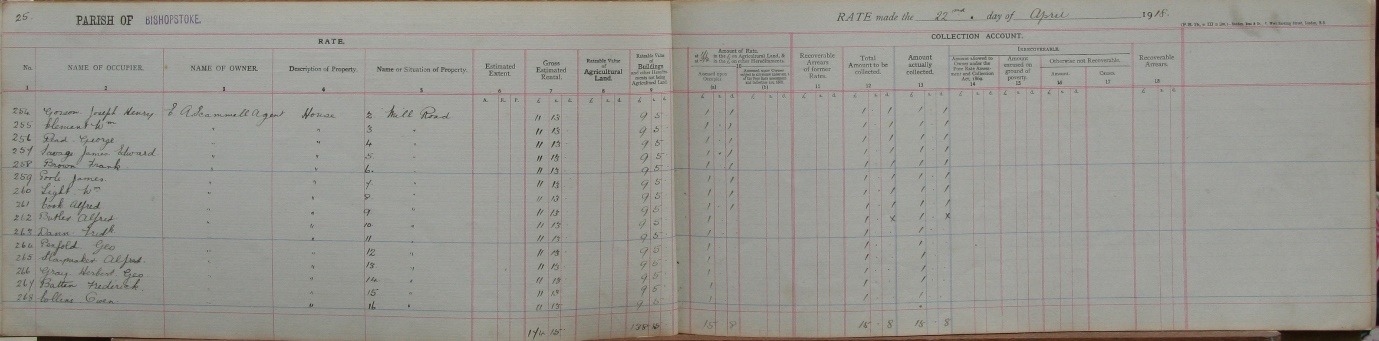 25
PARISH OF BISHOPSTOKE.
RATE made the 22nd. day of April 1918.
RATE.
COLLECTION ACCOUNT.
No. NAME OF OCCUPIER. NAME OF OWNER. Description of Property. Name or Situation of Property. Estimated Extent. Gross Estimated Rental. Rateable Value of Agricultural Land. Rateable Value of Buildings Amount of Rate. Recoverable Arrears of former Rates. Total Amount to be collected. Amount actually collected. IRRECOVERABLE. Amount excused on ground of poverty. Otherwise not Recoverable. Amount. Causes. Recoverable Arrears.
1 2 3 4 5 6 7 8 9 10 11 12 13 14 15 16 17 18
A. R. P. £ s. d.
254 Joseph Henry E A Scammell Agent House 2 Mill Road 11 13 9 5
255 Clement Wm " " 3 " 11 13 9 5
256 Read George " " 4 " 11 13 9 5
257 Savage James Edward " " 5 " 11 13 9 5
258 Brown Frank " " 6 " 11 13 9 5
259 Poole James " " 7 " 11 13 9 5
260 Light Wm " " 8 " 11 13 9 5
261 Cook Alfred " " 9 " 11 13 9 5
262 Butler Alfred " " 10 " 11 13 9 5
263 Dann Fredk " " 11 " 11 13 9 5
264 Penfold Geo " " 12 " 11 13 9 5
265 Alfred " " 13 " 11 13 9 5
266 Gray Herbert Geo " " 14 " 11 13 9 5
267 Batten Frederick " " 15 " 11 13 9 5
268 " 16 " 11 13 9 5
174 15 138 15 15 8 15 8 15 8